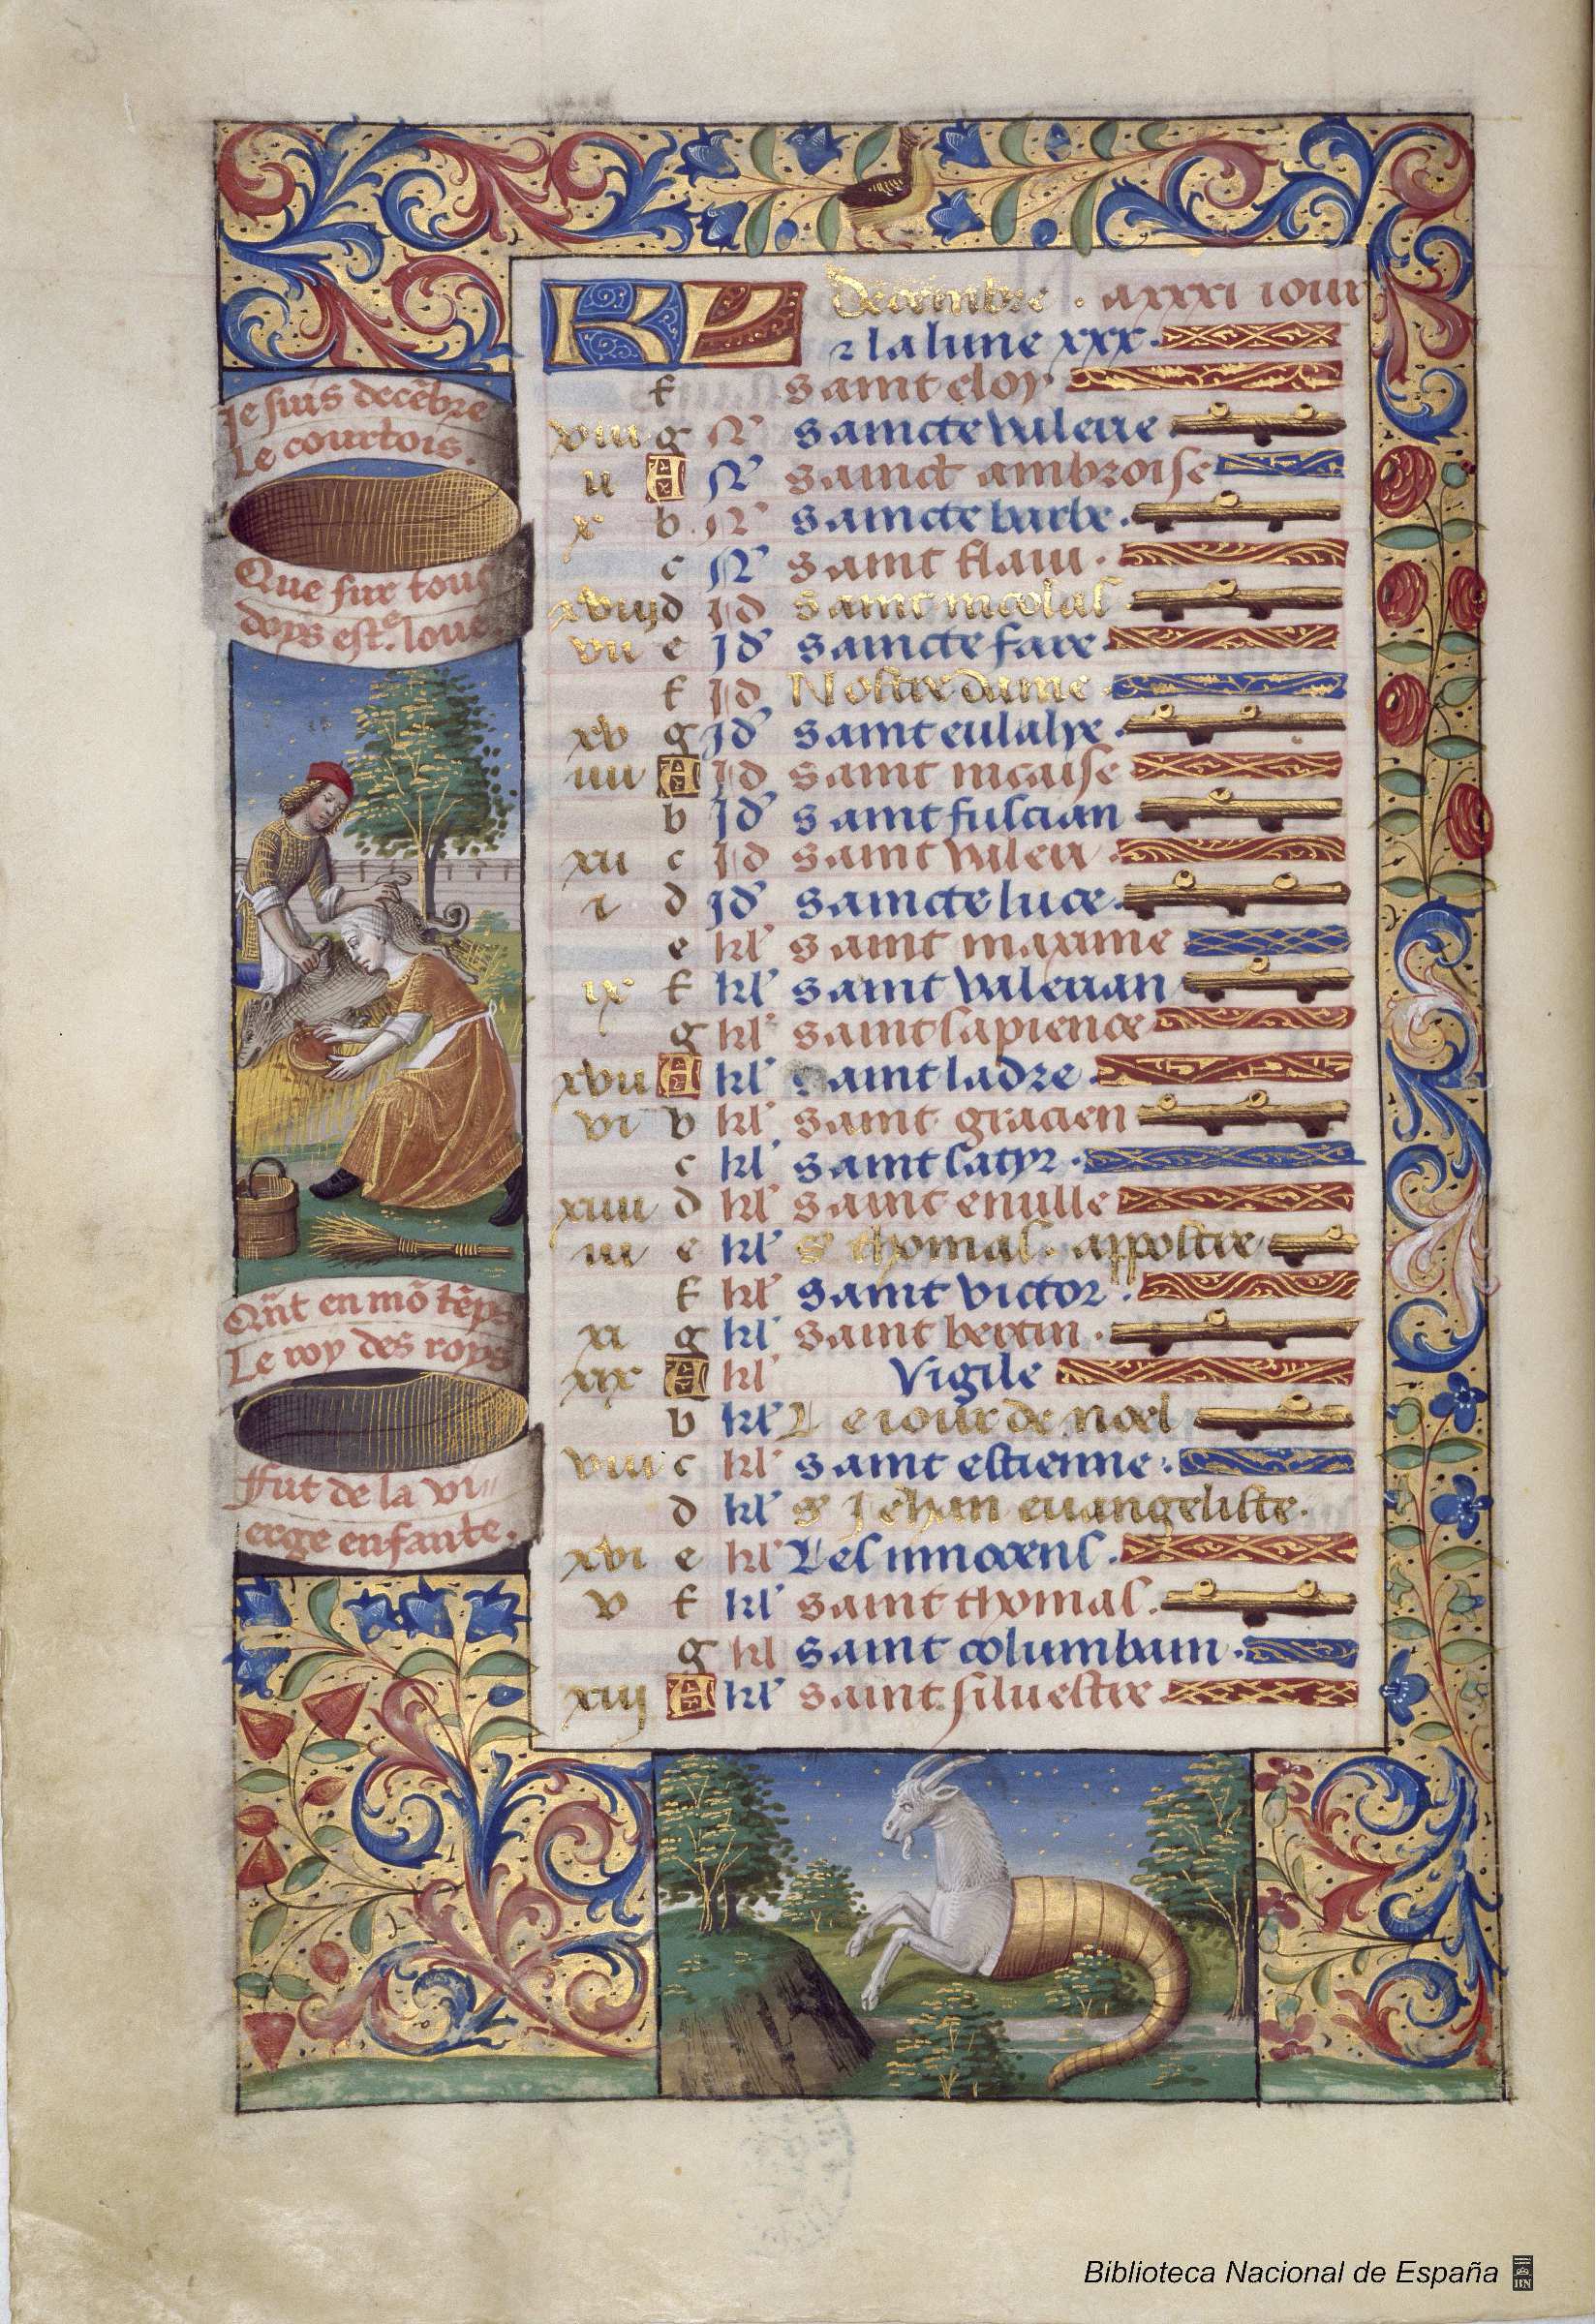 Je suis decẽbre
Le courtois.
Que sur tous
doys estre loue
Qñt en mõ tẽps
Le roy des roys
Fut de la vi
erge enfante.
KL Decembre . a xxxi iour
⁊ la lune xxx.
f saint eloy
xviii g N saincte valerie
ii A N sainct ambroise
x b N saincte barbe.
c N saint flaui.
xviij d Id saint nicolas
vii e Id saincte fare.
f Id Nostre dame
xv g Id saint eulalye.
iiii A Id saint nicaise
b Id saint fulcian
xii c Id saint valeri
i d Id saincte luce.
e kl saint maxime
ix f kl saint valerian
g kl saint sapience
xvii A kl saint ladre.
vi b kl saint gracien
c kl saint satyr.
xiiii d kl saint enulle
iii e kl s thomas. appostre
f kl saint victor.
xi g kl saint bertin.
xix A kl Vigile
b kl Le iour de noel
viii c kl saint estienne.
d kl s Jehan euangeliste.
xvi e kl Les innocens.
v f kl saint thomas.
g kl saint columbain.
xiij A kl saint siluestre
Biblioteca Nacional de España
BN